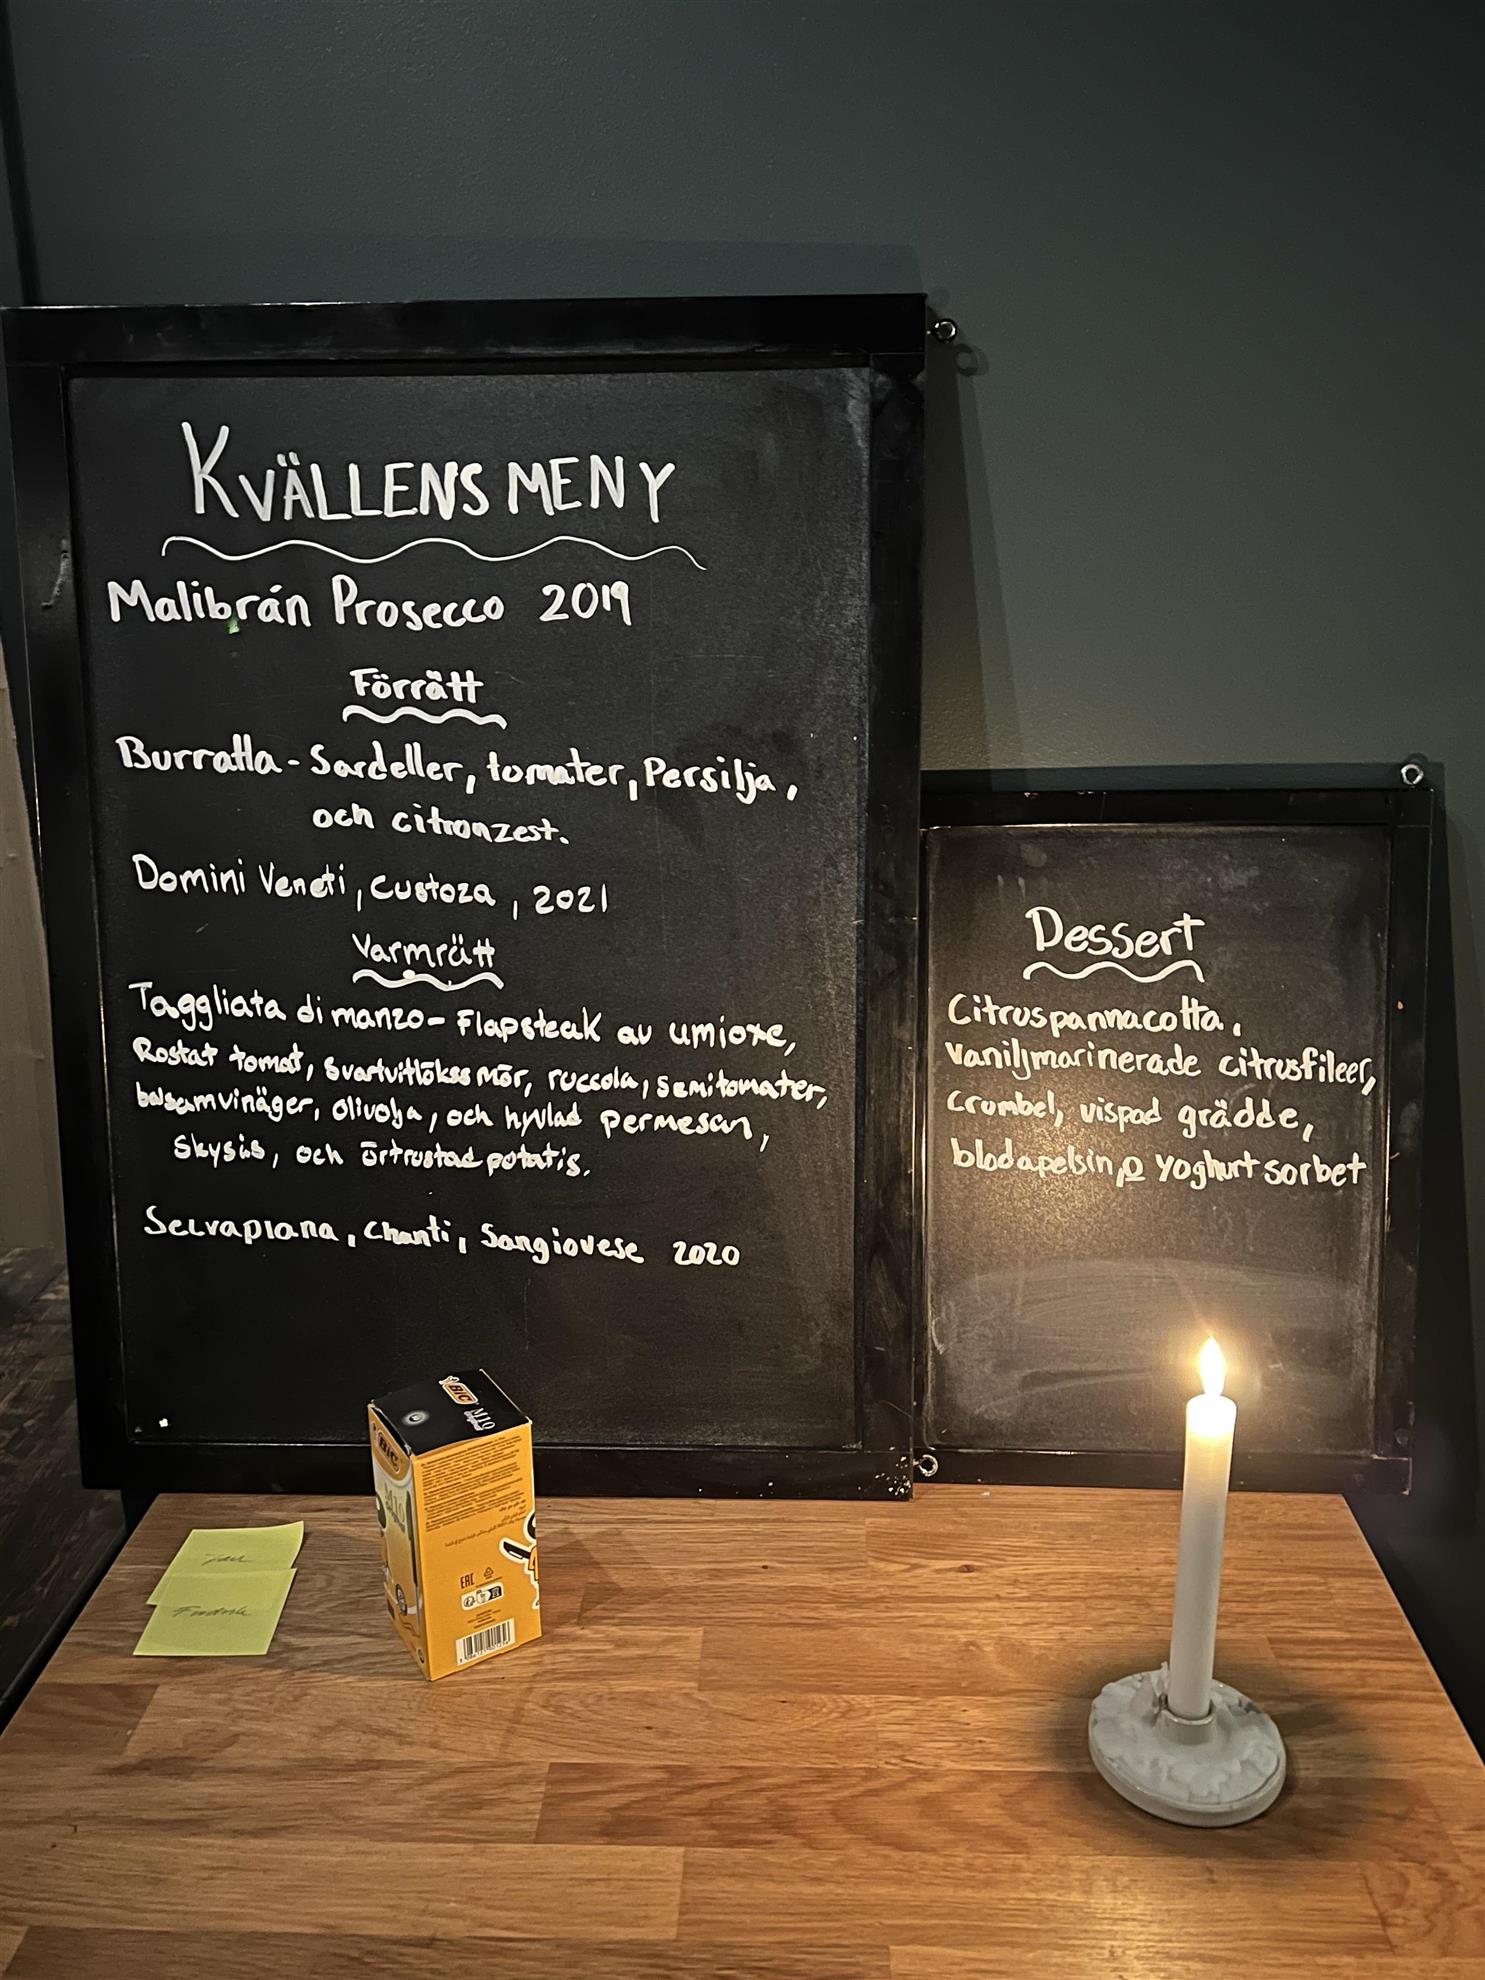 KVÄLLENS MENY
Malibrán Prosecco 2019
Förrätt
Burratta - Sardeller, tomater, Persilja,
och citronzest.
Domini Veneti, Custoza, 2021
Varmrätt
Taggliata di manzo - Flapsteak av umioxe,
Rostat tomat, Svartvitlökssmör, ruccola, semitomater,
balsamvinäger, olivolja, och hyvlad permesan,
Skysås, och örtrostad potatis.
Selvapiana, Chanti, Sangiovese 2020
Dessert
Citruspannacotta,
vaniljmarinerade citrusfileer,
crumbel, vispad grädde,
blodapelsin, o yoghurt sorbet
BIC
M10
BIC
M10
EAC